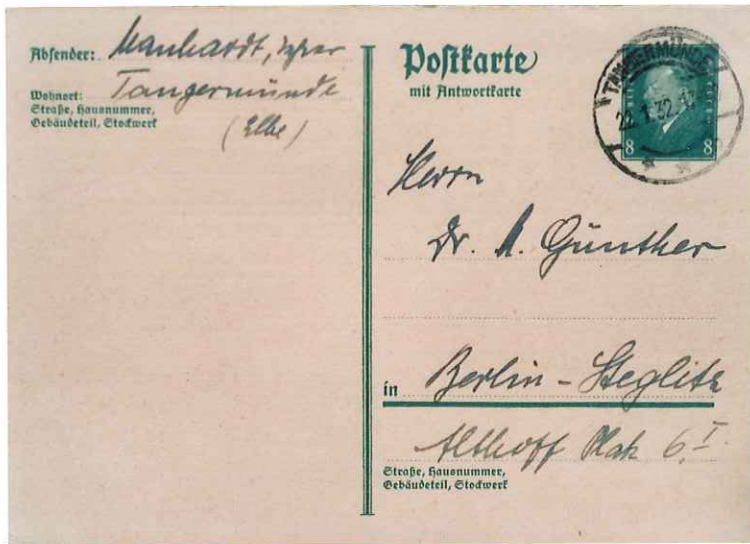 Absender: Manhardt,
Tangermünde
Wohnort:
Straße, Hausnummer,
Gebäudeteil, Stockwerk
(Elbe)
Postkarte
mit Antwortkarte
TANGERMÜNDE
22.1.32
8 8
Herrn
Dr. A. Günther
in Berlin-Steglitz
Althoff Platz 6 I
Straße, Hausnummer,
Gebäudeteil, Stockwerk